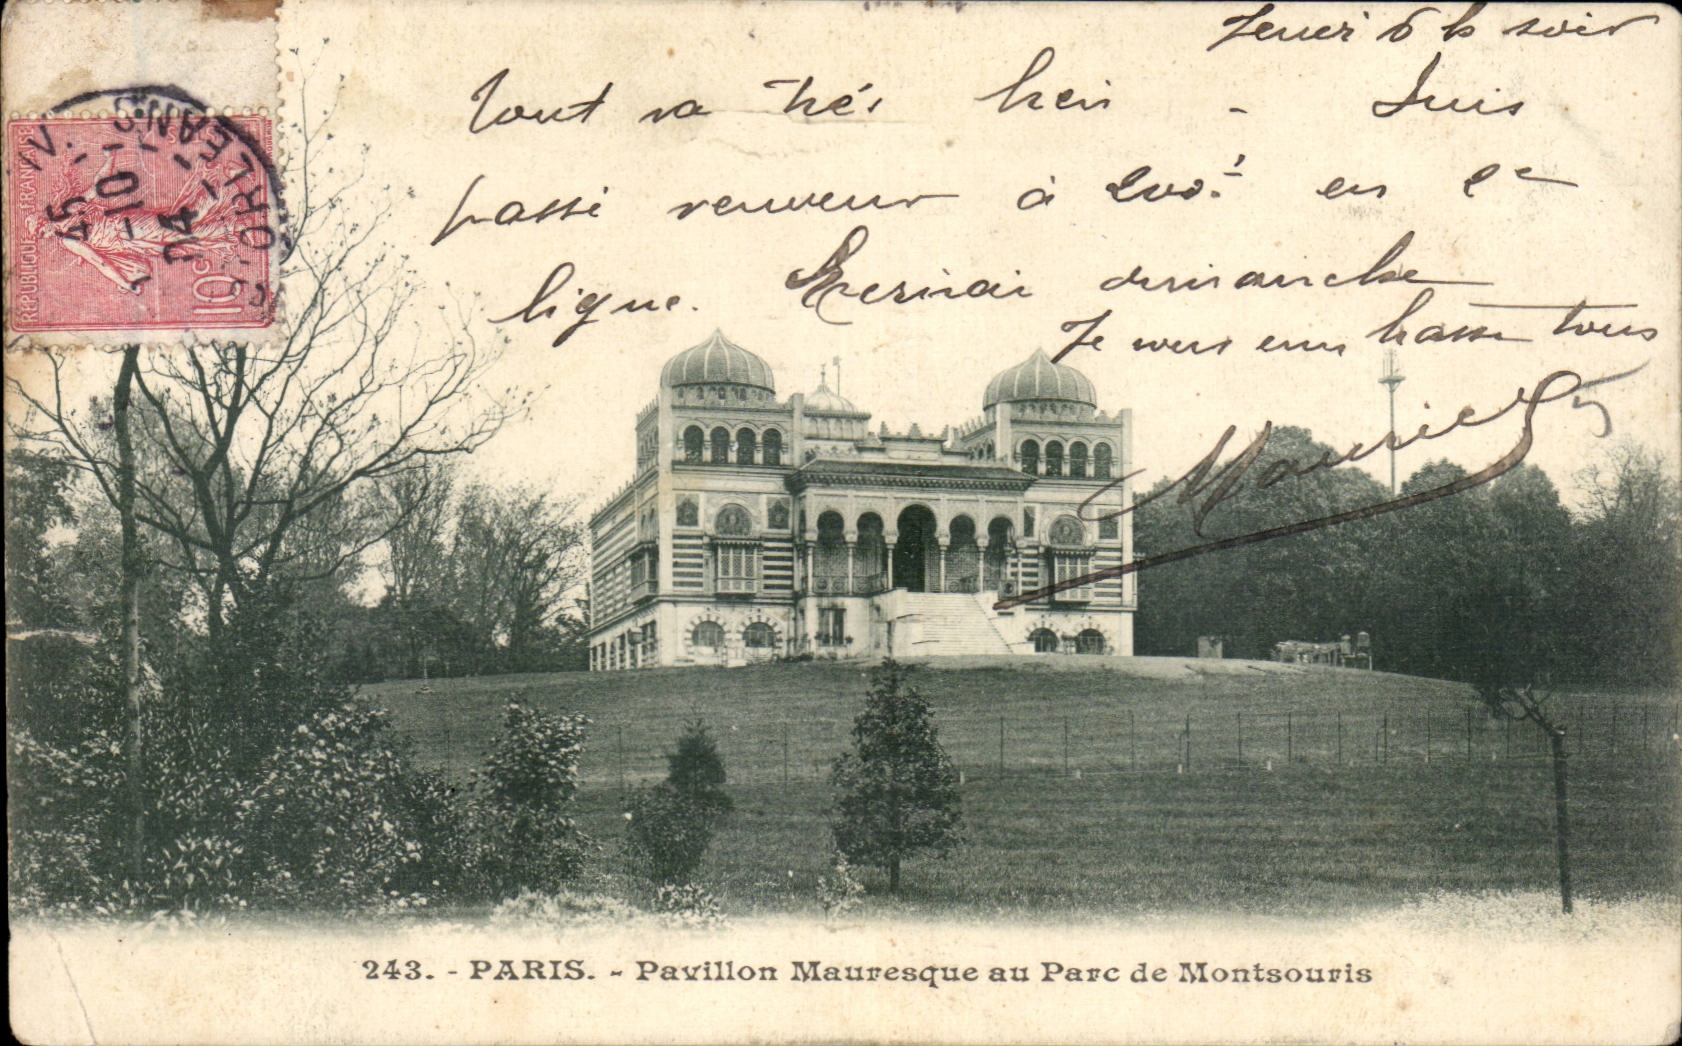 Jeudi 6 h soir
Tout va très bien - Suis
passé venveur à 200f en 2e
ligne. Ecrirai dimanche
Je vous embrasse tous
Maurice
RÉPUBLIQUE FRANÇAISE
10c
ORLEANS
45
2 -10
04
243. - PARIS. - Pavillon Mauresque au Parc de Montsouris